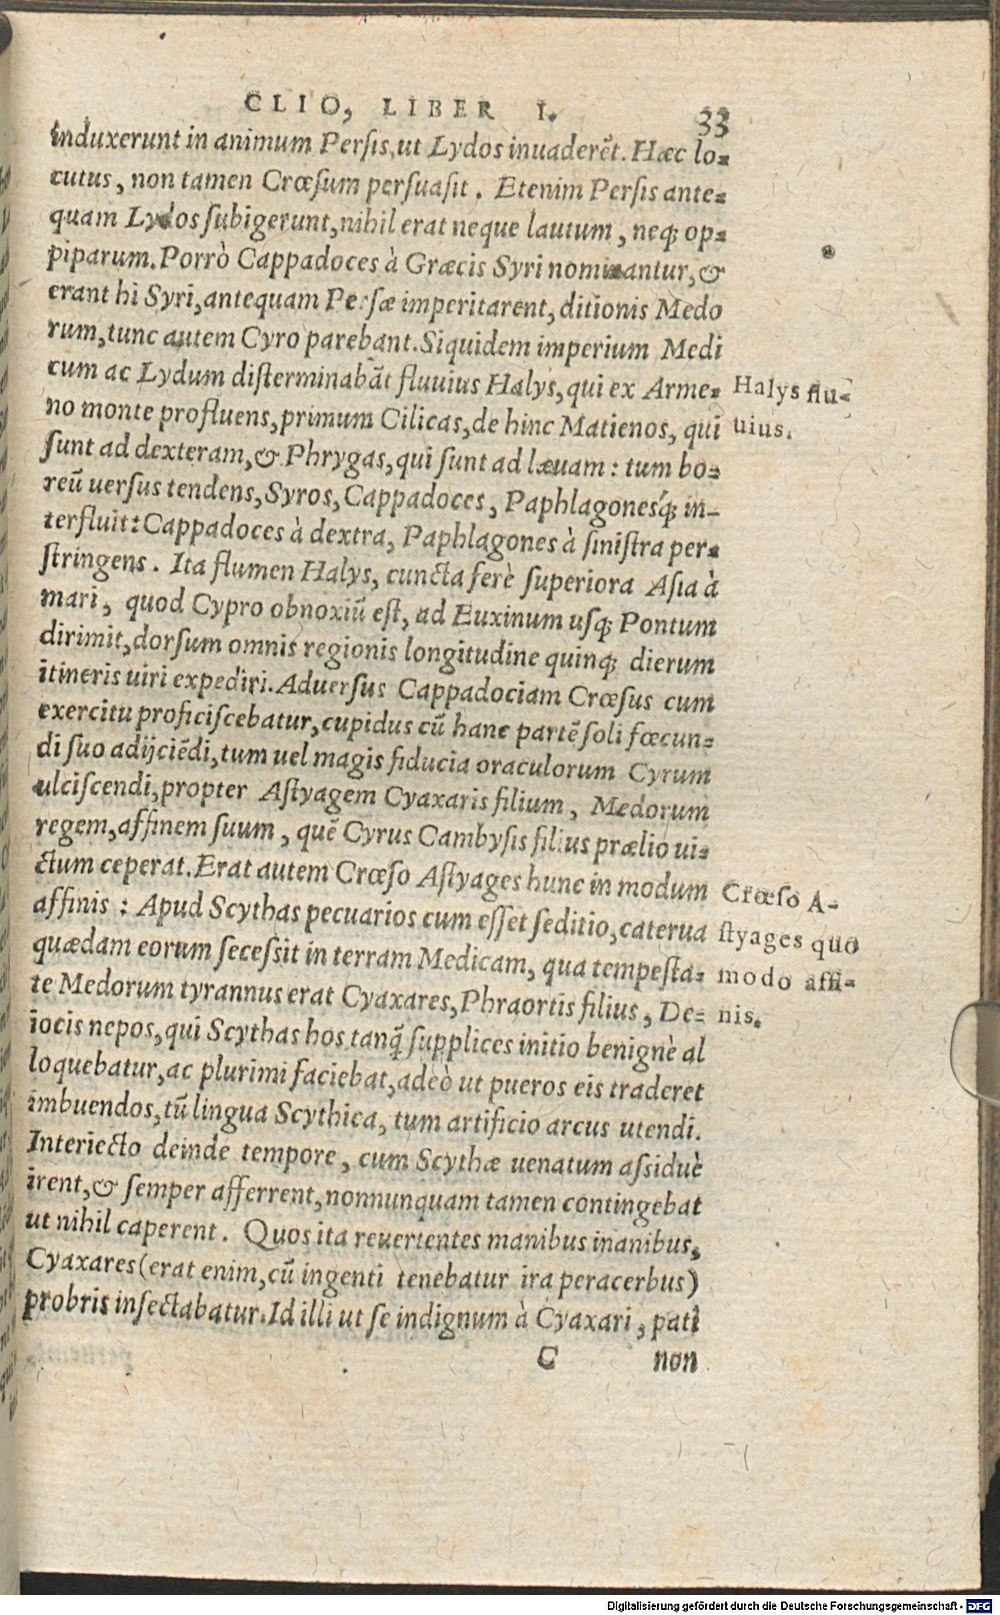 CLIO, LIBER I. 33
induxerunt in animum Persis, ut Lydos inuaderēt. Hæc lo⸗
cutus, non tamen Crœsum persuasit. Etenim Persis ante⸗
quam Lydos subigerunt, nihil erat neque lautum, neq; op⸗
piparum. Porrò Cappadoces à Græcis Syri nominantur, &
erant hi Syri, antequam Persæ imperitarent, ditionis Medo
rum, tunc autem Cyro parebant. Siquidem imperium Medi
cum ac Lydum disterminabāt fluuius Halys, qui ex Arme⸗
Halys flu⸗
no monte profluens, primum Cilicas, de hinc Matienos, qui
uius.
sunt ad dexteram, & Phrygas, qui sunt ad læuam: tum bo⸗
reū uersus tendens, Syros, Cappadoces, Paphlagonesq́; in⸗
terfluit: Cappadoces à dextra, Paphlagones à sinistra per⸗
stringens. Ita flumen Halys, cuncta ferè superiora Asia à
mari, quod Cypro obnoxiū est, ad Euxinum usq; Pontum
dirimit, dorsum omnis regionis longitudine quinq; dierum
itineris uiri expediri. Aduersus Cappadociam Crœsus cum
exercitu proficiscebatur, cupidus cū hanc partē soli fœcun⸗
di suo adijciēdi, tum uel magis fiducia oraculorum Cyrum
ulciscendi, propter Astyagem Cyaxaris filium, Medorum
regem, affinem suum, quē Cyrus Cambysis filius prælio ui⸗
ctum ceperat. Erat autem Crœso Astyages hunc in modum
Crœso A-
affinis: Apud Scythas pecuarios cum esset seditio, caterua
styages quo
quædam eorum secessit in terram Medicam, qua tempesta⸗
modo affi-
te Medorum tyrannus erat Cyaxares, Phraortis filius, De⸗
nis.
iocis nepos, qui Scythas hos tanq̃ supplices initio benignè al
loquebatur, ac plurimi faciebat, adeò ut pueros eis traderet
imbuendos, tū lingua Scythica, tum artificio arcus utendi.
Interiecto deinde tempore, cum Scythæ uenatum assiduè
irent, & semper afferrent, nonnunquam tamen contingebat
ut nihil caperent. Quos ita reuertentes manibus inanibus,
Cyaxares (erat enim, cū ingenti tenebatur ira peracerbus)
probris insectabatur. Id illi ut se indignum à Cyaxari, pati
C non
Digitalisierung gefördert durch die Deutsche Forschungsgemeinschaft - DFG